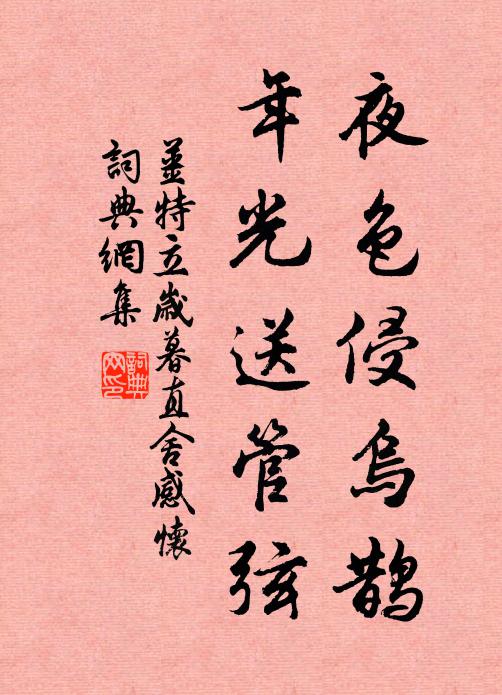 夜色侵烏鵲
年光送管弦
姜特立歲暮直舍感懷
詞典網集
詞典網印